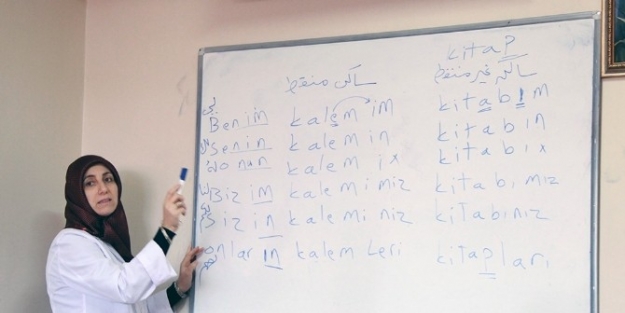 kitap
Benim kalem im kitabım
Senin kalem in kitabın
onun kalem ix kitabıx
Biz im kalemi miz kitabı mız
Siz in kalemi niz kitabınız
onlar ın kalem leri kitapları